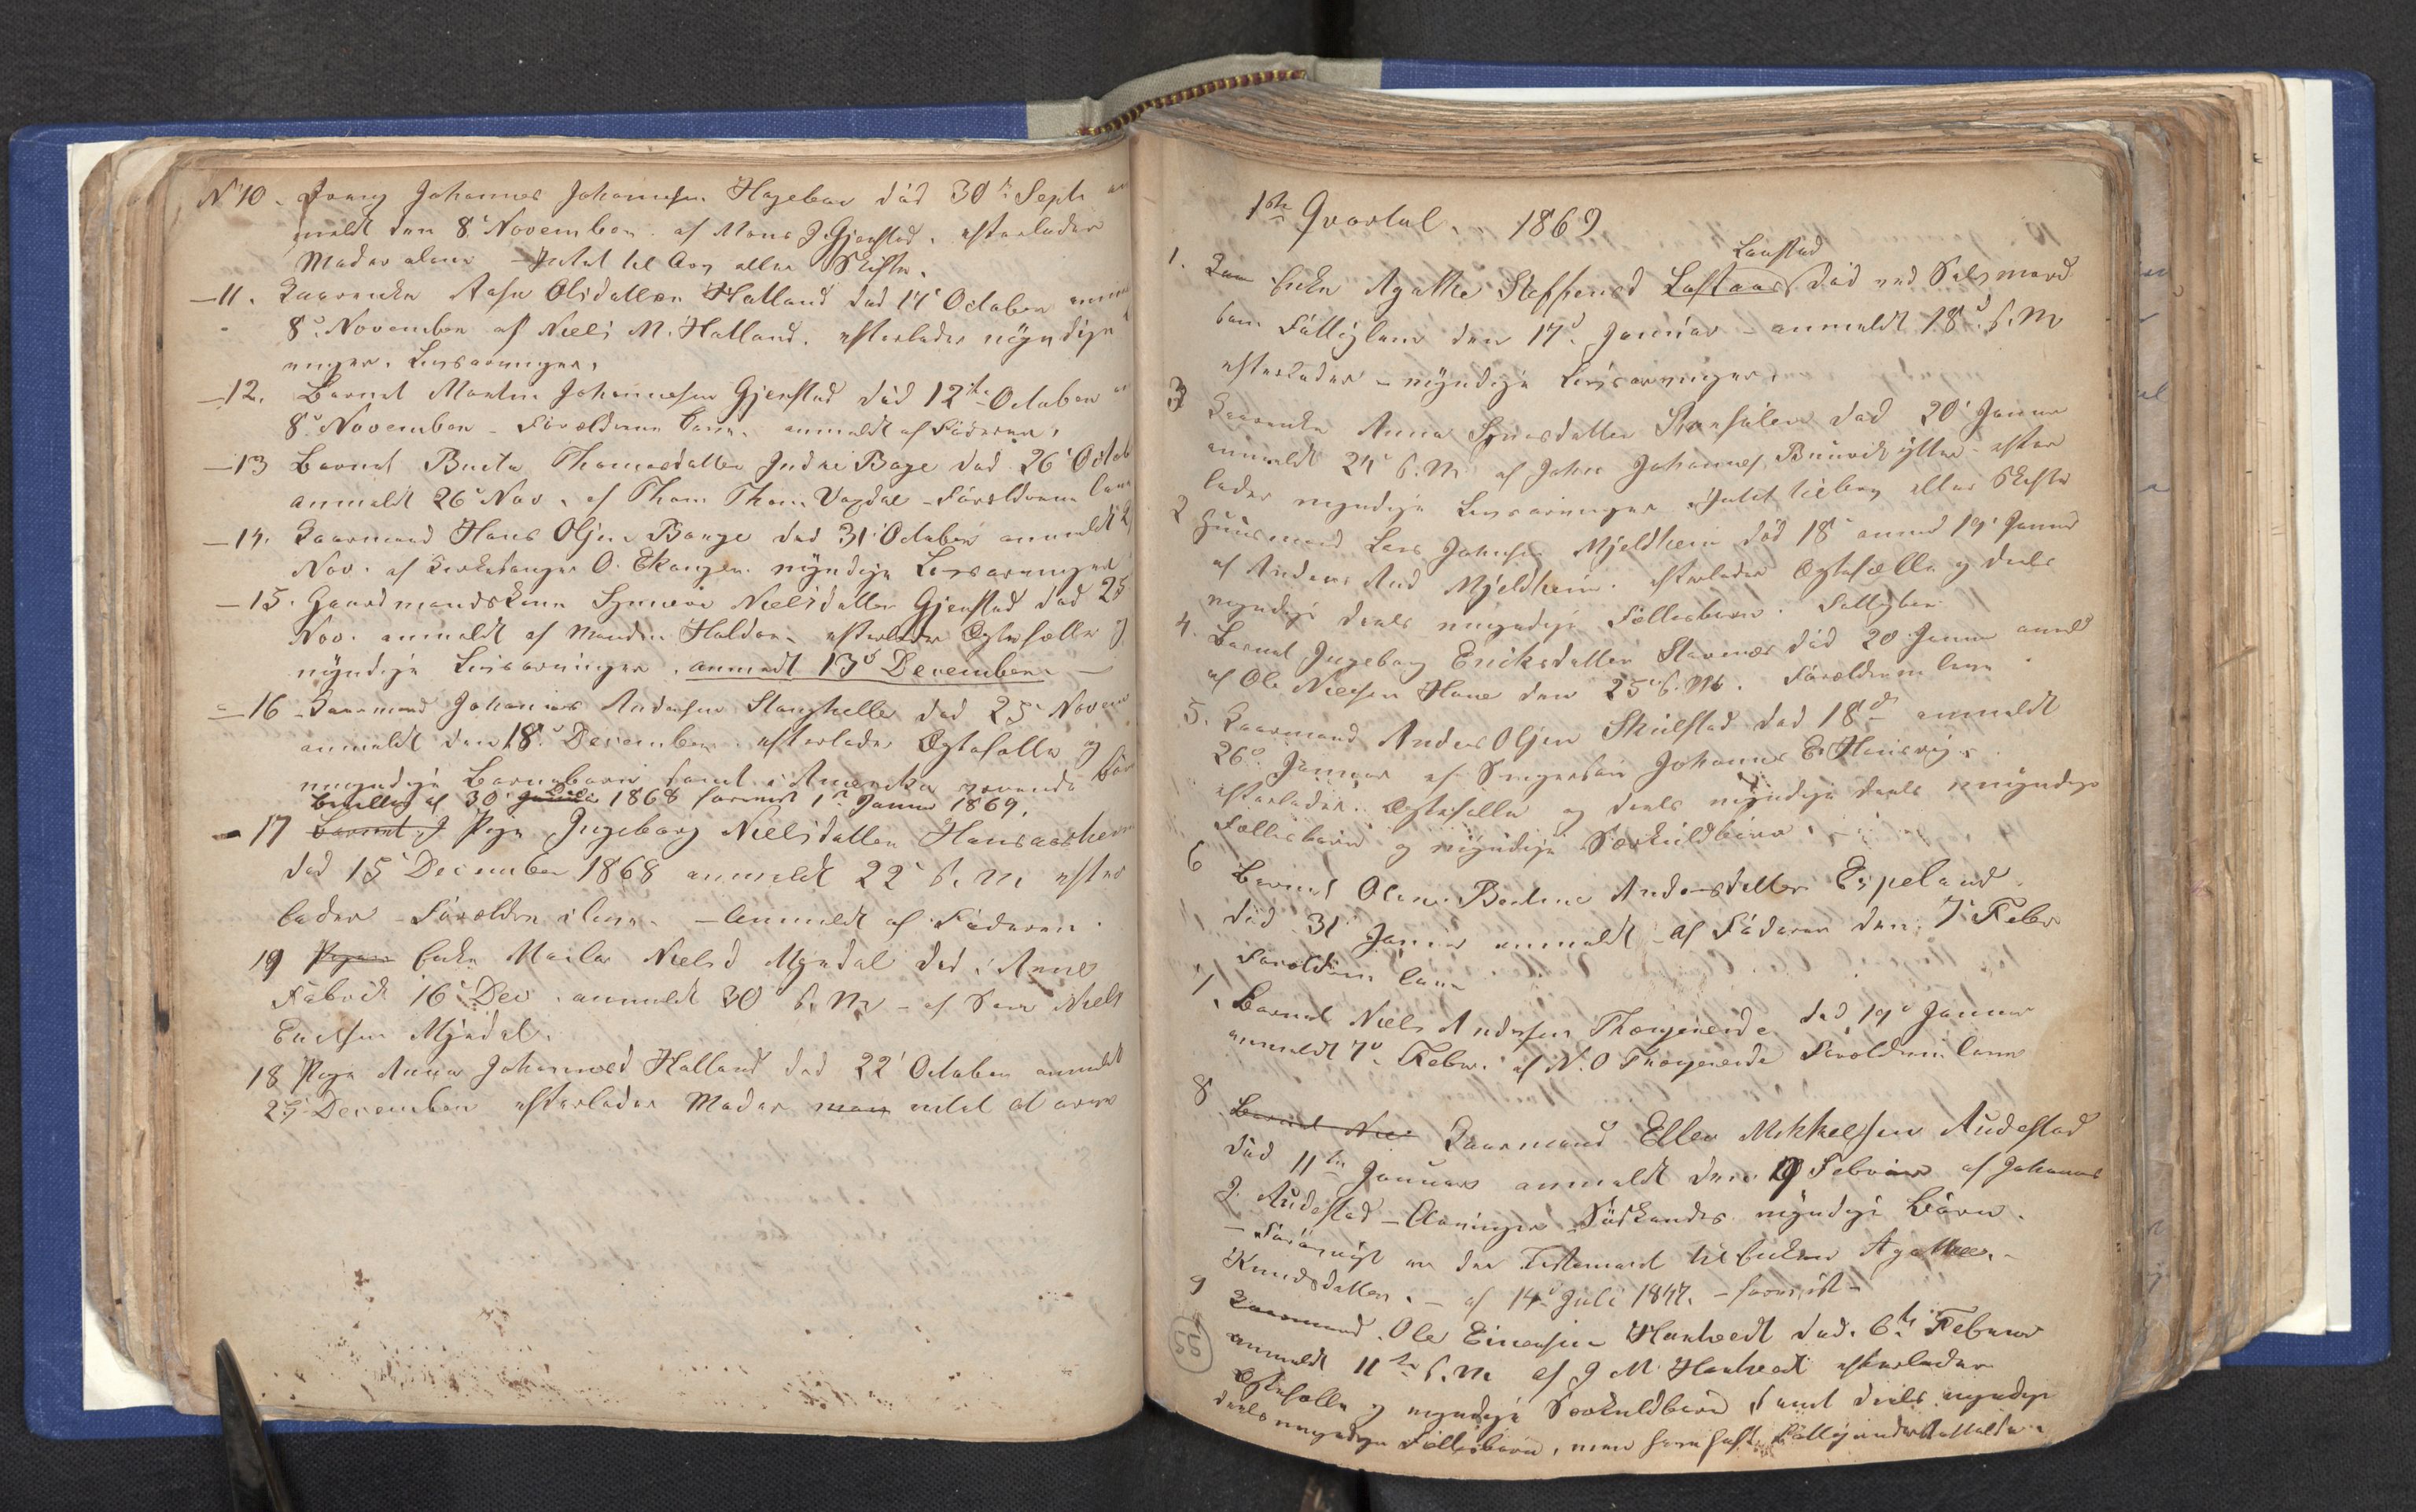 N 10. Dreng Johannes Johannesen Hagebøe død 30te Septb an
meldt den 8de November af Mons J. Gjerstad, efterlader
Moder alene - Intet til Arv eller Skifte.
- 11. Kaarenke Aase Olsdatter Halland død 14de October anm
8de November af Niels M. Halland, efterlader myndige
 Livsarvinger.
- 12. Barnet Martin Johannesen Gjerstad død 12te October an
8de November - Forældrene leve. anmeldt af Faderen.
- 13 Barnet Brita Thomasdatter Indre Boge død 26de Octob
anmeldt 26de Nov. af Thom. Thom. Vaxdal - Forældrene leve
- 14. Kaarmand Hans Olsen Bouge død 31te October anmeldt
Nov. af Kirkesanger O. Ekanger. myndige Livsarvinger
- 15. Gaardmandskone Synneve Nielsdatter Gjerstad død 25
Nov. anmeldt af Manden Haldor. efterlader Ægtefælle og
myndige Livsarvinger. anmeldt 13de December. -
- 16 Kaarmand Johannes Andersen Stanghelle død 25de Novem
anmeldt den 18de December. efterlader Ægtefælle og
myndige Børnebørn samt i Amerika
 af 30 Dec 1868 forevist 1ste Januar 1869.
- 17 Barnet J Pige Ingeborg Nielsdatter Hansaasheim
død 15de December 1868 anmeldt 22de s. M. efter
lader - Forældre i live. - Anmeldt af Faderen.
19 Pigen Enke Marta Nielsd Myhdal død i Arne
Fabrik 16de Dec. anmeldt 30te s. M. - af Søn Niels
Ericksen Myhdal.
18 Pige Anna Johannesd Halland død 22de October anmeldt
27de December efterlader Moder men intet at arve
1ste Qvartal. 1869
Langstad
1. Kaarenke Agatha Steffensd Loftaas død ved Selvmord
som Fattiglem den 17de Januar - anmeldt 18de s. M
efterlader - myndige Livsarvinger.
3 Kaarenke Anna Hansdatter død 20de Januar
anmeldt 24de s. M af Johs Johannes Bruvik yttre - efter
lader myndige Livsarvinger. Intet til Arv eller Skifte
2 Huusmand Lars Johnsen Mjeldheim død 18de anmd 19de Januar
af Anders And Mjeldheim. efterlader Ægtefælle og deels
myndige deels umyndige Fællesbørn. Fattigben
4. Barnet Ingeborg Eriksdatter Stavenæs død 20de Januar anmd
af Ole Nielsen Hane den 25de s. M. Forældrene leve
5. Kaarmand Anders Olsen Skulstad død 18de anmeldt
26de Januar af Svigersøn Johannes E. Hansvig.
efterlader Ægtefælle og deels myndige deels umyndige
Fællesbørn og myndige Særkuldbørn.
6 Barnet Olene Bertine Andersdatter Espeland
død 31te Januar anmeldt af Faderen den 7de Febr
Forældrene leve
7. Barnet Niels Andersen Thorgeirseide død 19de Januar
anmeldt 7de Febr. af N. O Thorgeirseide Forældrene leve
8 Barnet Nie Kaarmand Ellev Mikkelsen Audestad
død 11te Januar anmeldt den 9 Februar af Johannes
J. Audestad - Arvinger Sødskendes myndige Børn.
- Forøvrigt er der Testament til Enken Agatha
Knudsdatter. - af 14de Juli 1847. - forevist -
9 Kaarmand Ole Einarsen Hartvedt død 6te Februar
anmeldt 11te s. M. af J M Hartvedt efterlader
Ægtefælle og myndige Særkuldbørn samt deels myndige
deels umyndige Fællesbørn, men Fattigunderstøttelse.